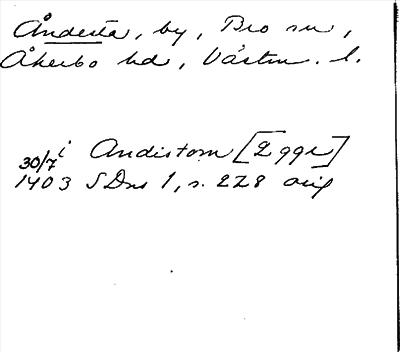 Åndesta, by, Bro sn,
Åkerbo hd, Västm. l.
i Andistom [Eggh]
30/7
1403 SDns 1, s. 228 orig